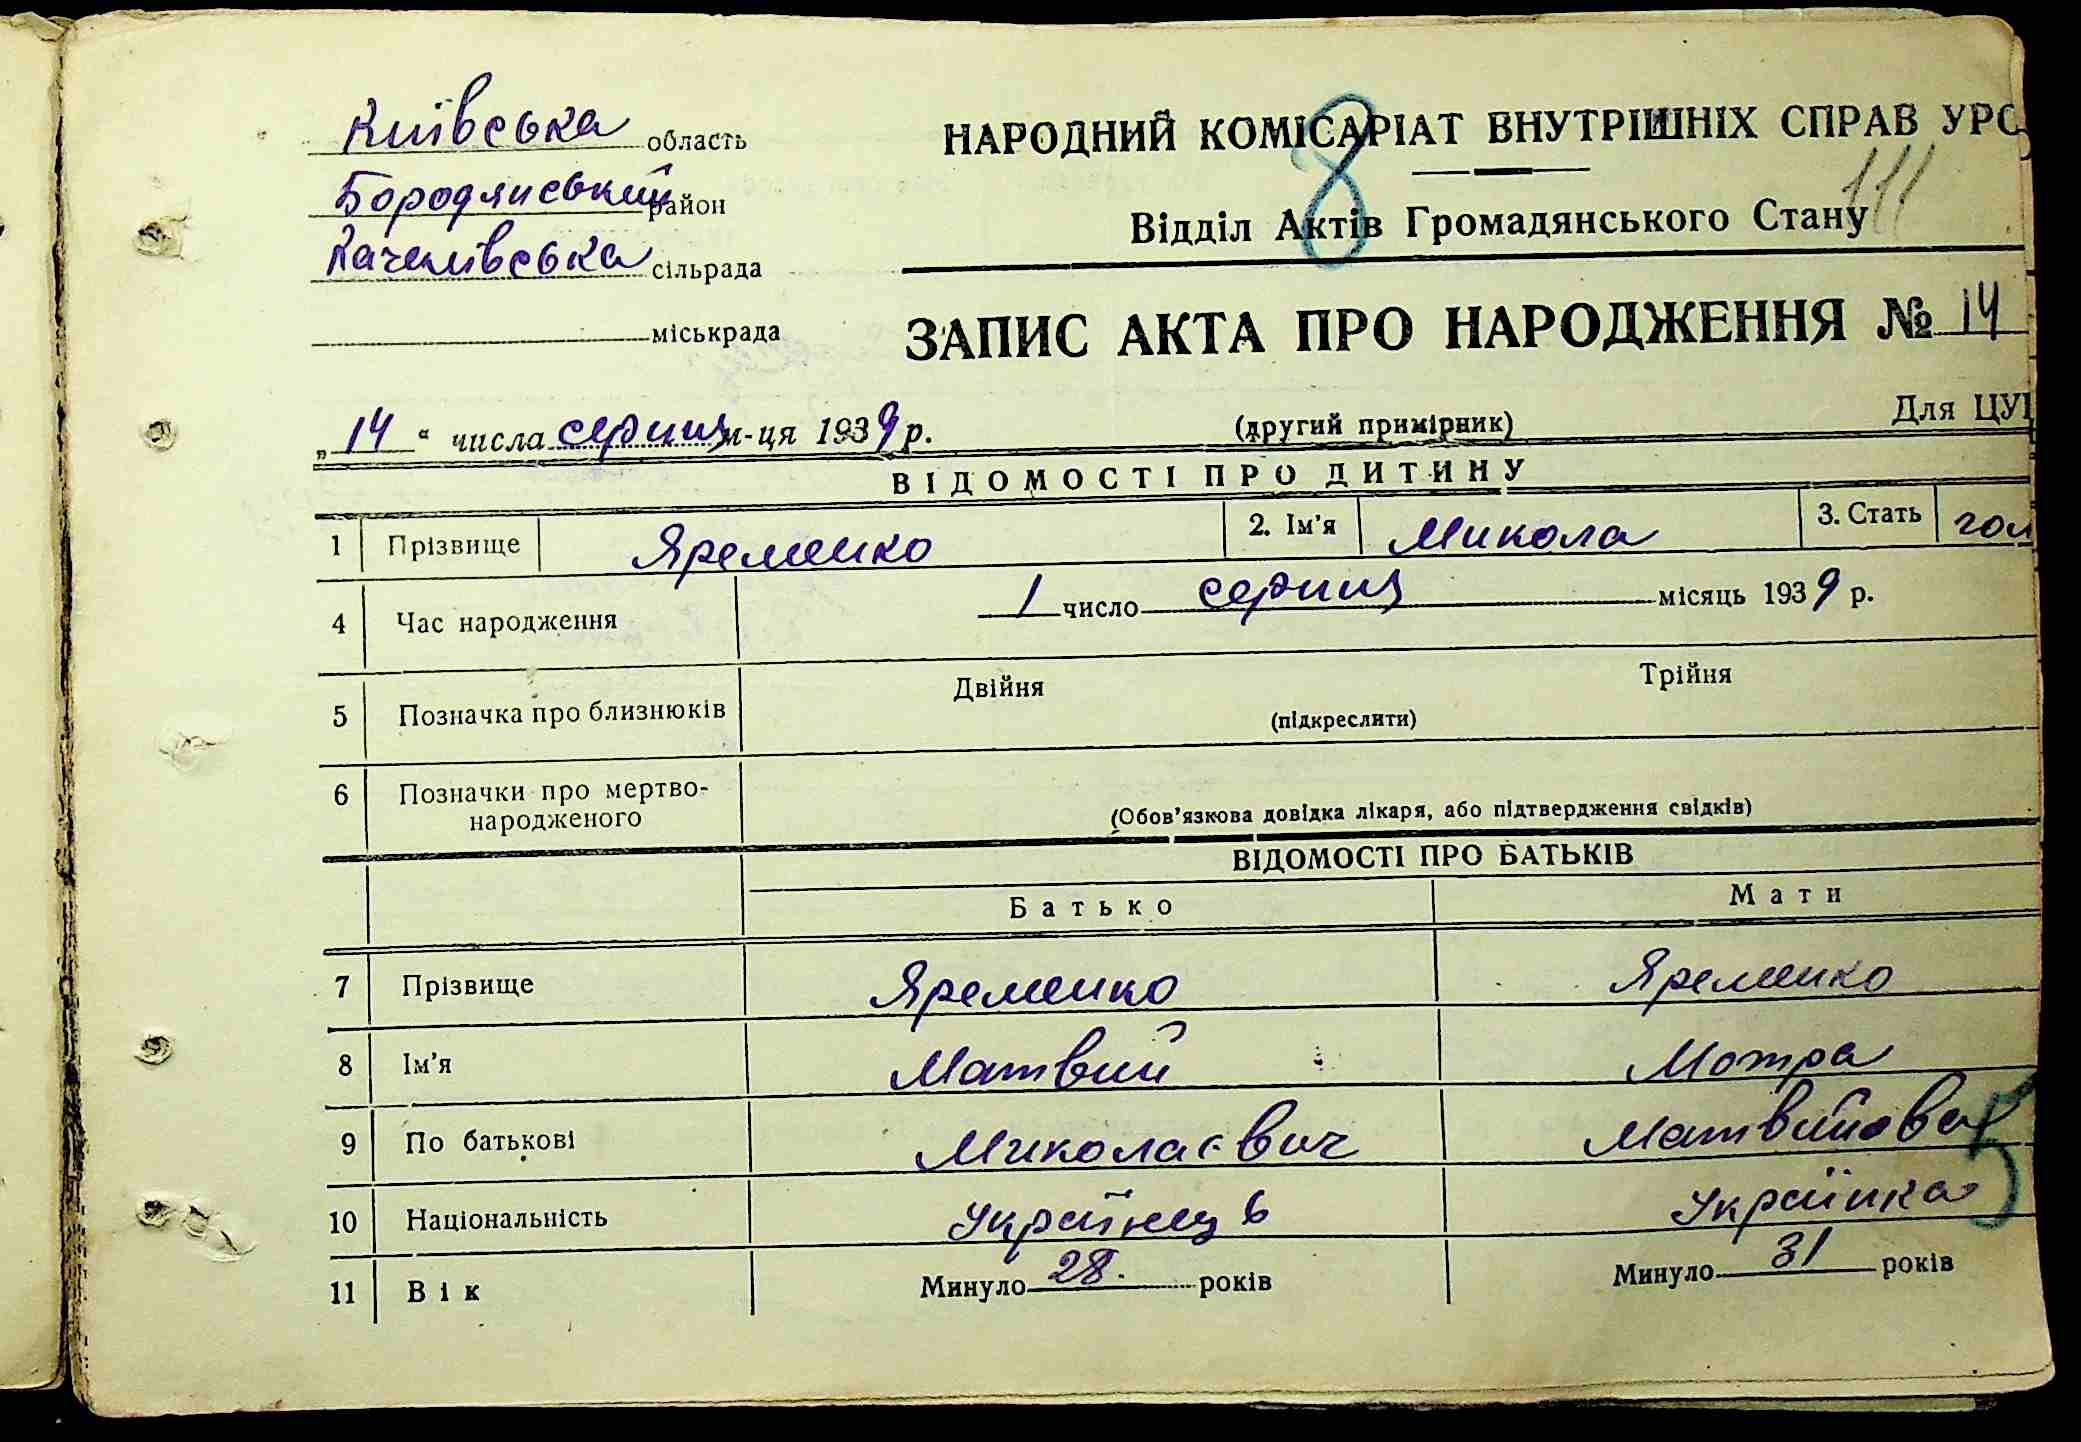 Київська область
Бородянський район
Качалівська сільрада
міськрада
НАРОДНИЙ КОМІСАРІАТ ВНУТРІШНІХ СПРАВ УРС
8
111
Відділ Актів Громадянського Стану
ЗАПИС АКТА ПРО НАРОДЖЕННЯ № 14
„ 14 “ числа серпня м-ця 1939 р.
(другий примірник)
Для ЦУ
ВІДОМОСТІ ПРО ДИТИНУ
1 Прізвище Яременко 2. Ім'я Микола 3. Стать чол
4 Час народження 1 число серпня місяць 1939 р.
5 Позначка про близнюків Двійня Трійня
(підкреслити)
6 Позначки про мертво-
народженого
(Обов'язкова довідка лікаря, або підтвердження свідків)
ВІДОМОСТІ ПРО БАТЬКІВ
Батько Мати
7 Прізвище Яременко Яременко
8 Ім'я Матвий Мотра
9 По батькові Миколаєвич Матвийовна
5
10 Національність Українець Українка
11 Вік Минуло 28 років Минуло 31 років